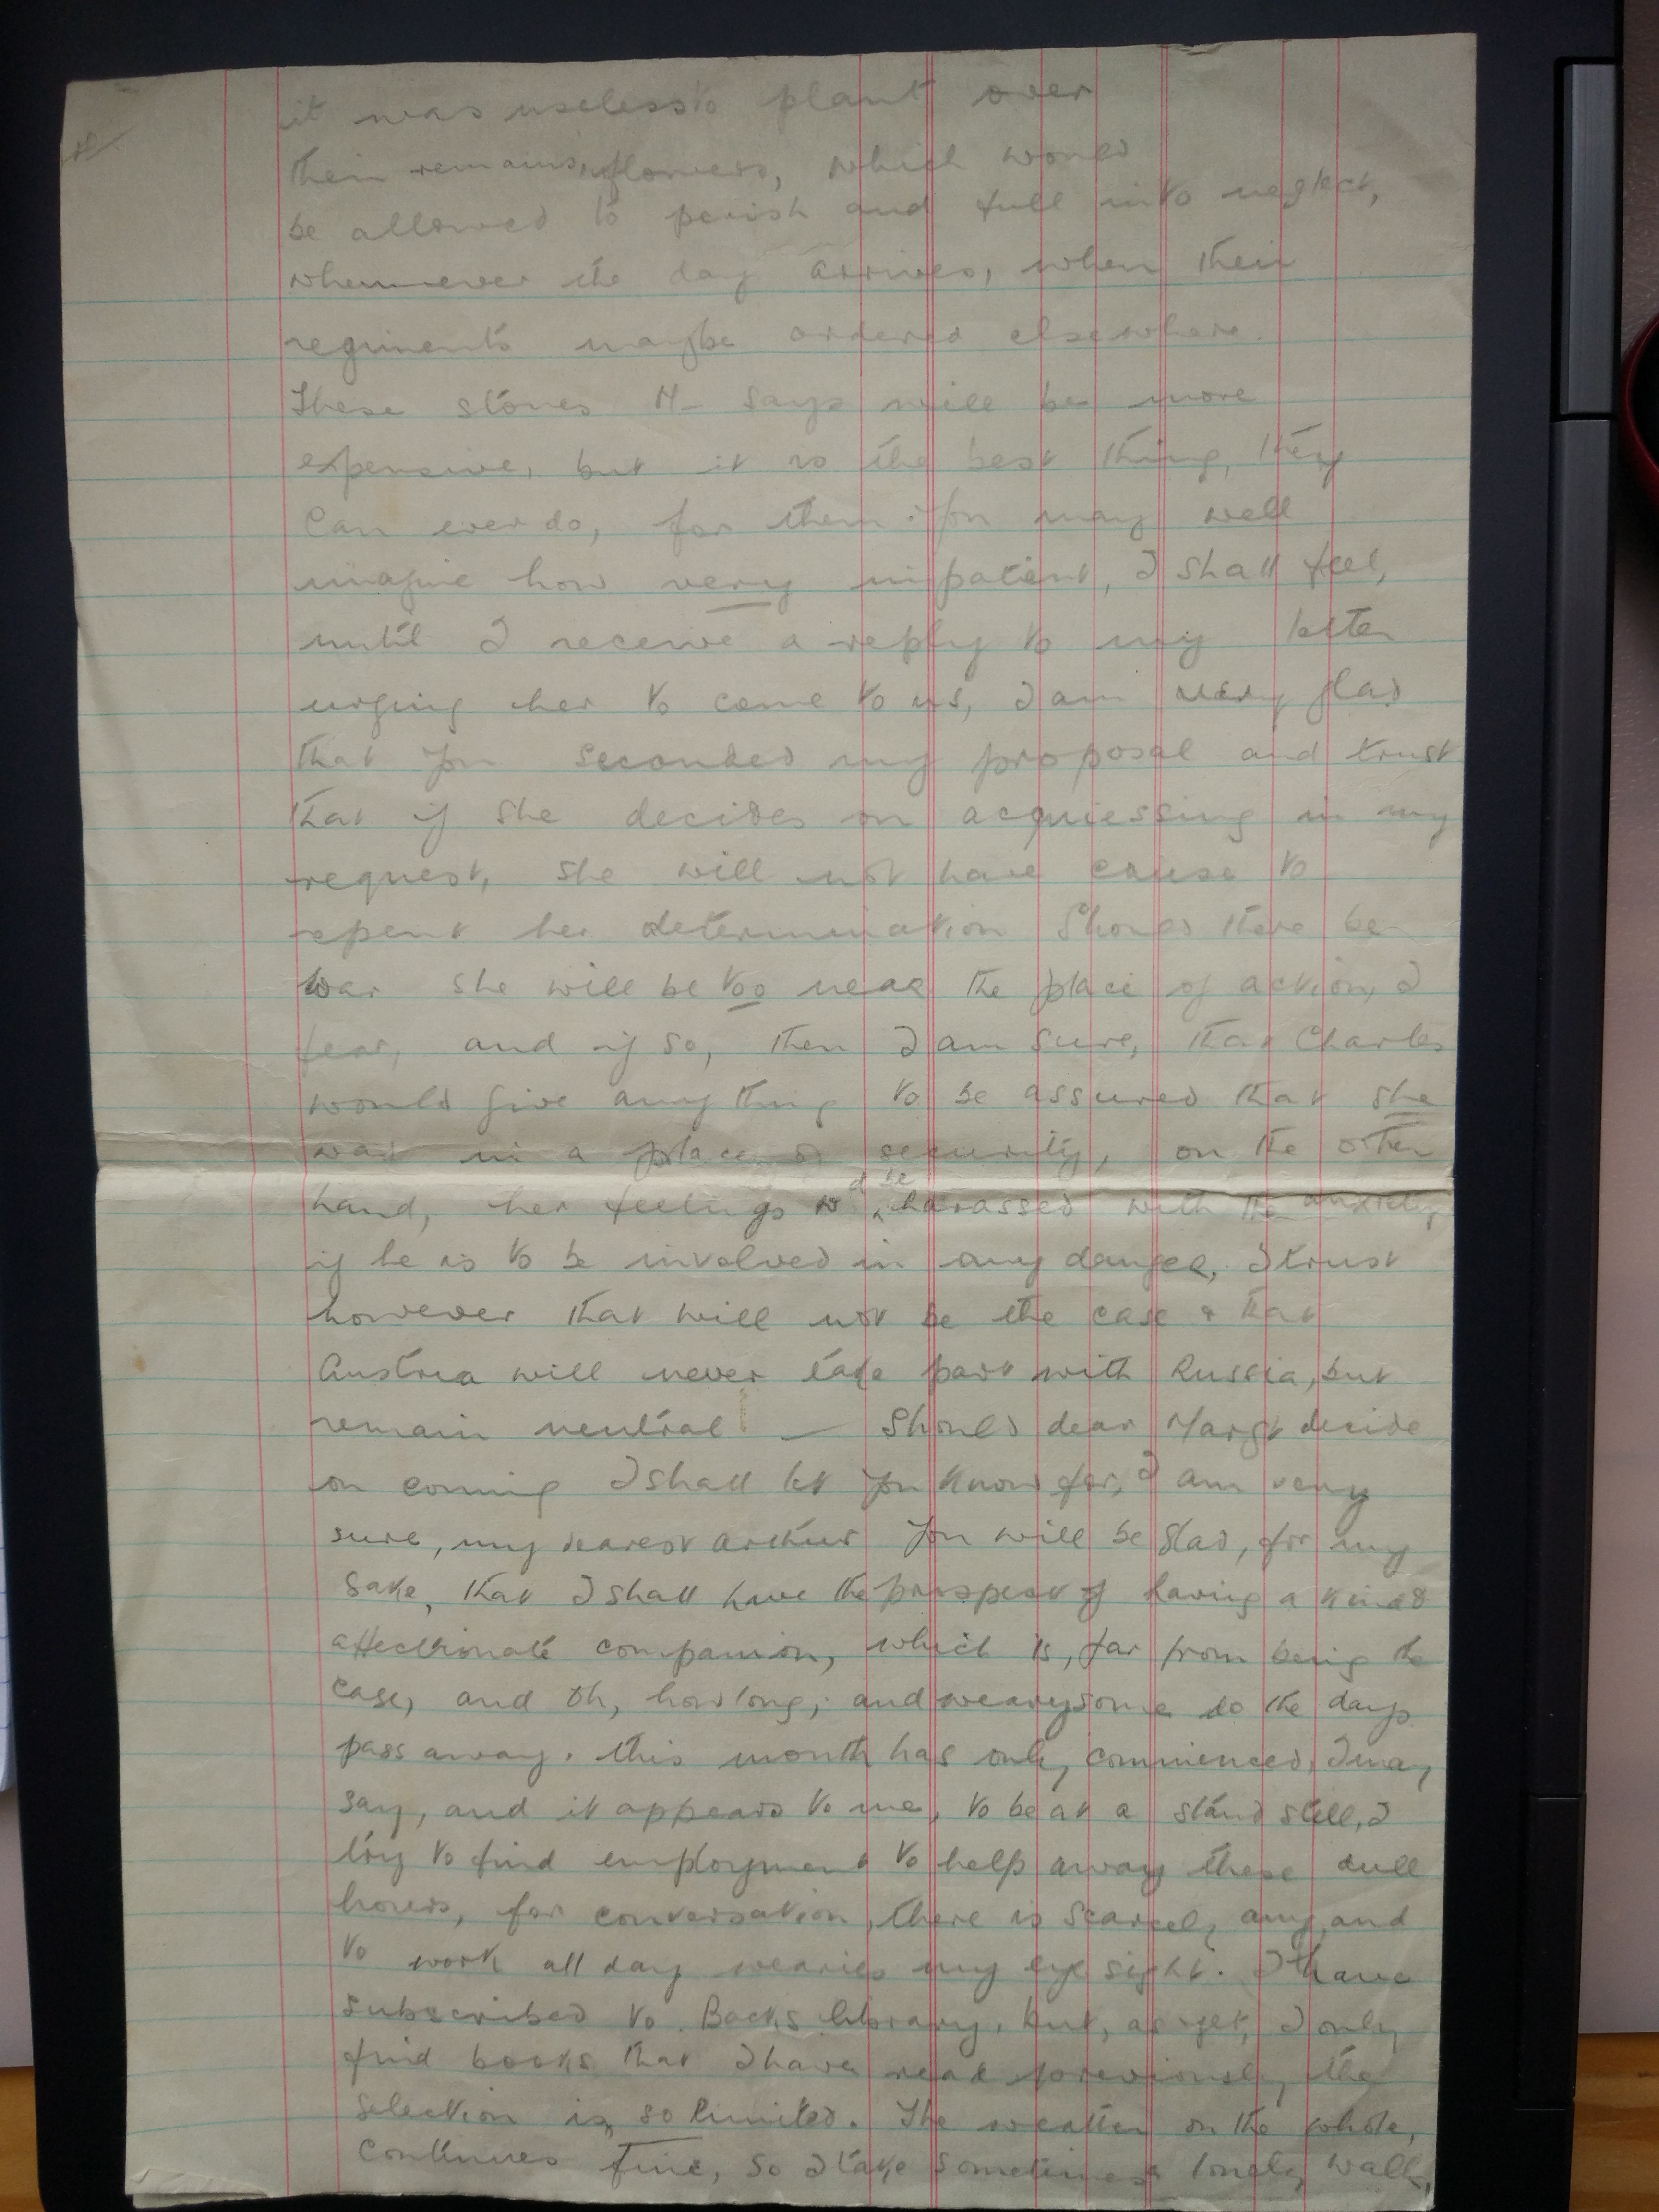 it was useless to plant over
their remains, flowers, which would
be allowed to perish and full into neglect,
whenever the day arrives, when their
regiments maybe ordered elsewhere.
These stones M- says will be more
expensive, but it is the best thing, they
can ever do, for them. You may well
imagine how very impatient, I shall feel,
until I receive a reply to my letter
urging her to come to us, I am very glad
that you seconded my proposal and trust
that if she decides on acquiessing in my
request, she will not have cause to
repent her determination Should there be
war she will be too near the place of action, I
fear, and if so, then I am sure, that Charles
would give any thing to be assured that she
was in a place of security, on the other
hand, her feelings wd be harassed with the anxiety
if he is to be involved in any danger, I trust
however that will not be the case & that
Austria will never take part with Russia, but
remain neutral! — Should dear Margt decide
on coming I shall let you know for, I am very
sure, my dearest Arthur you will be glad, for my
sake, that I shall have the prospect of having a kind &
affectionate companion, which is, far from being the
case, and oh, how long, and wearysome do the days
pass away. this month has only commenced, I may
say, and it appears to me, to be at a stand still, I
try to find employment to help away these dull
hours, for conversation, there is scarcely any, and
to work all day wearies my eye sight. I have
subscribed to Backs library, but, as yet, I only
find books that I have read previously, the
selection is so limited. The weather on the whole,
continues fine, so I take sometimes a lonely walk,